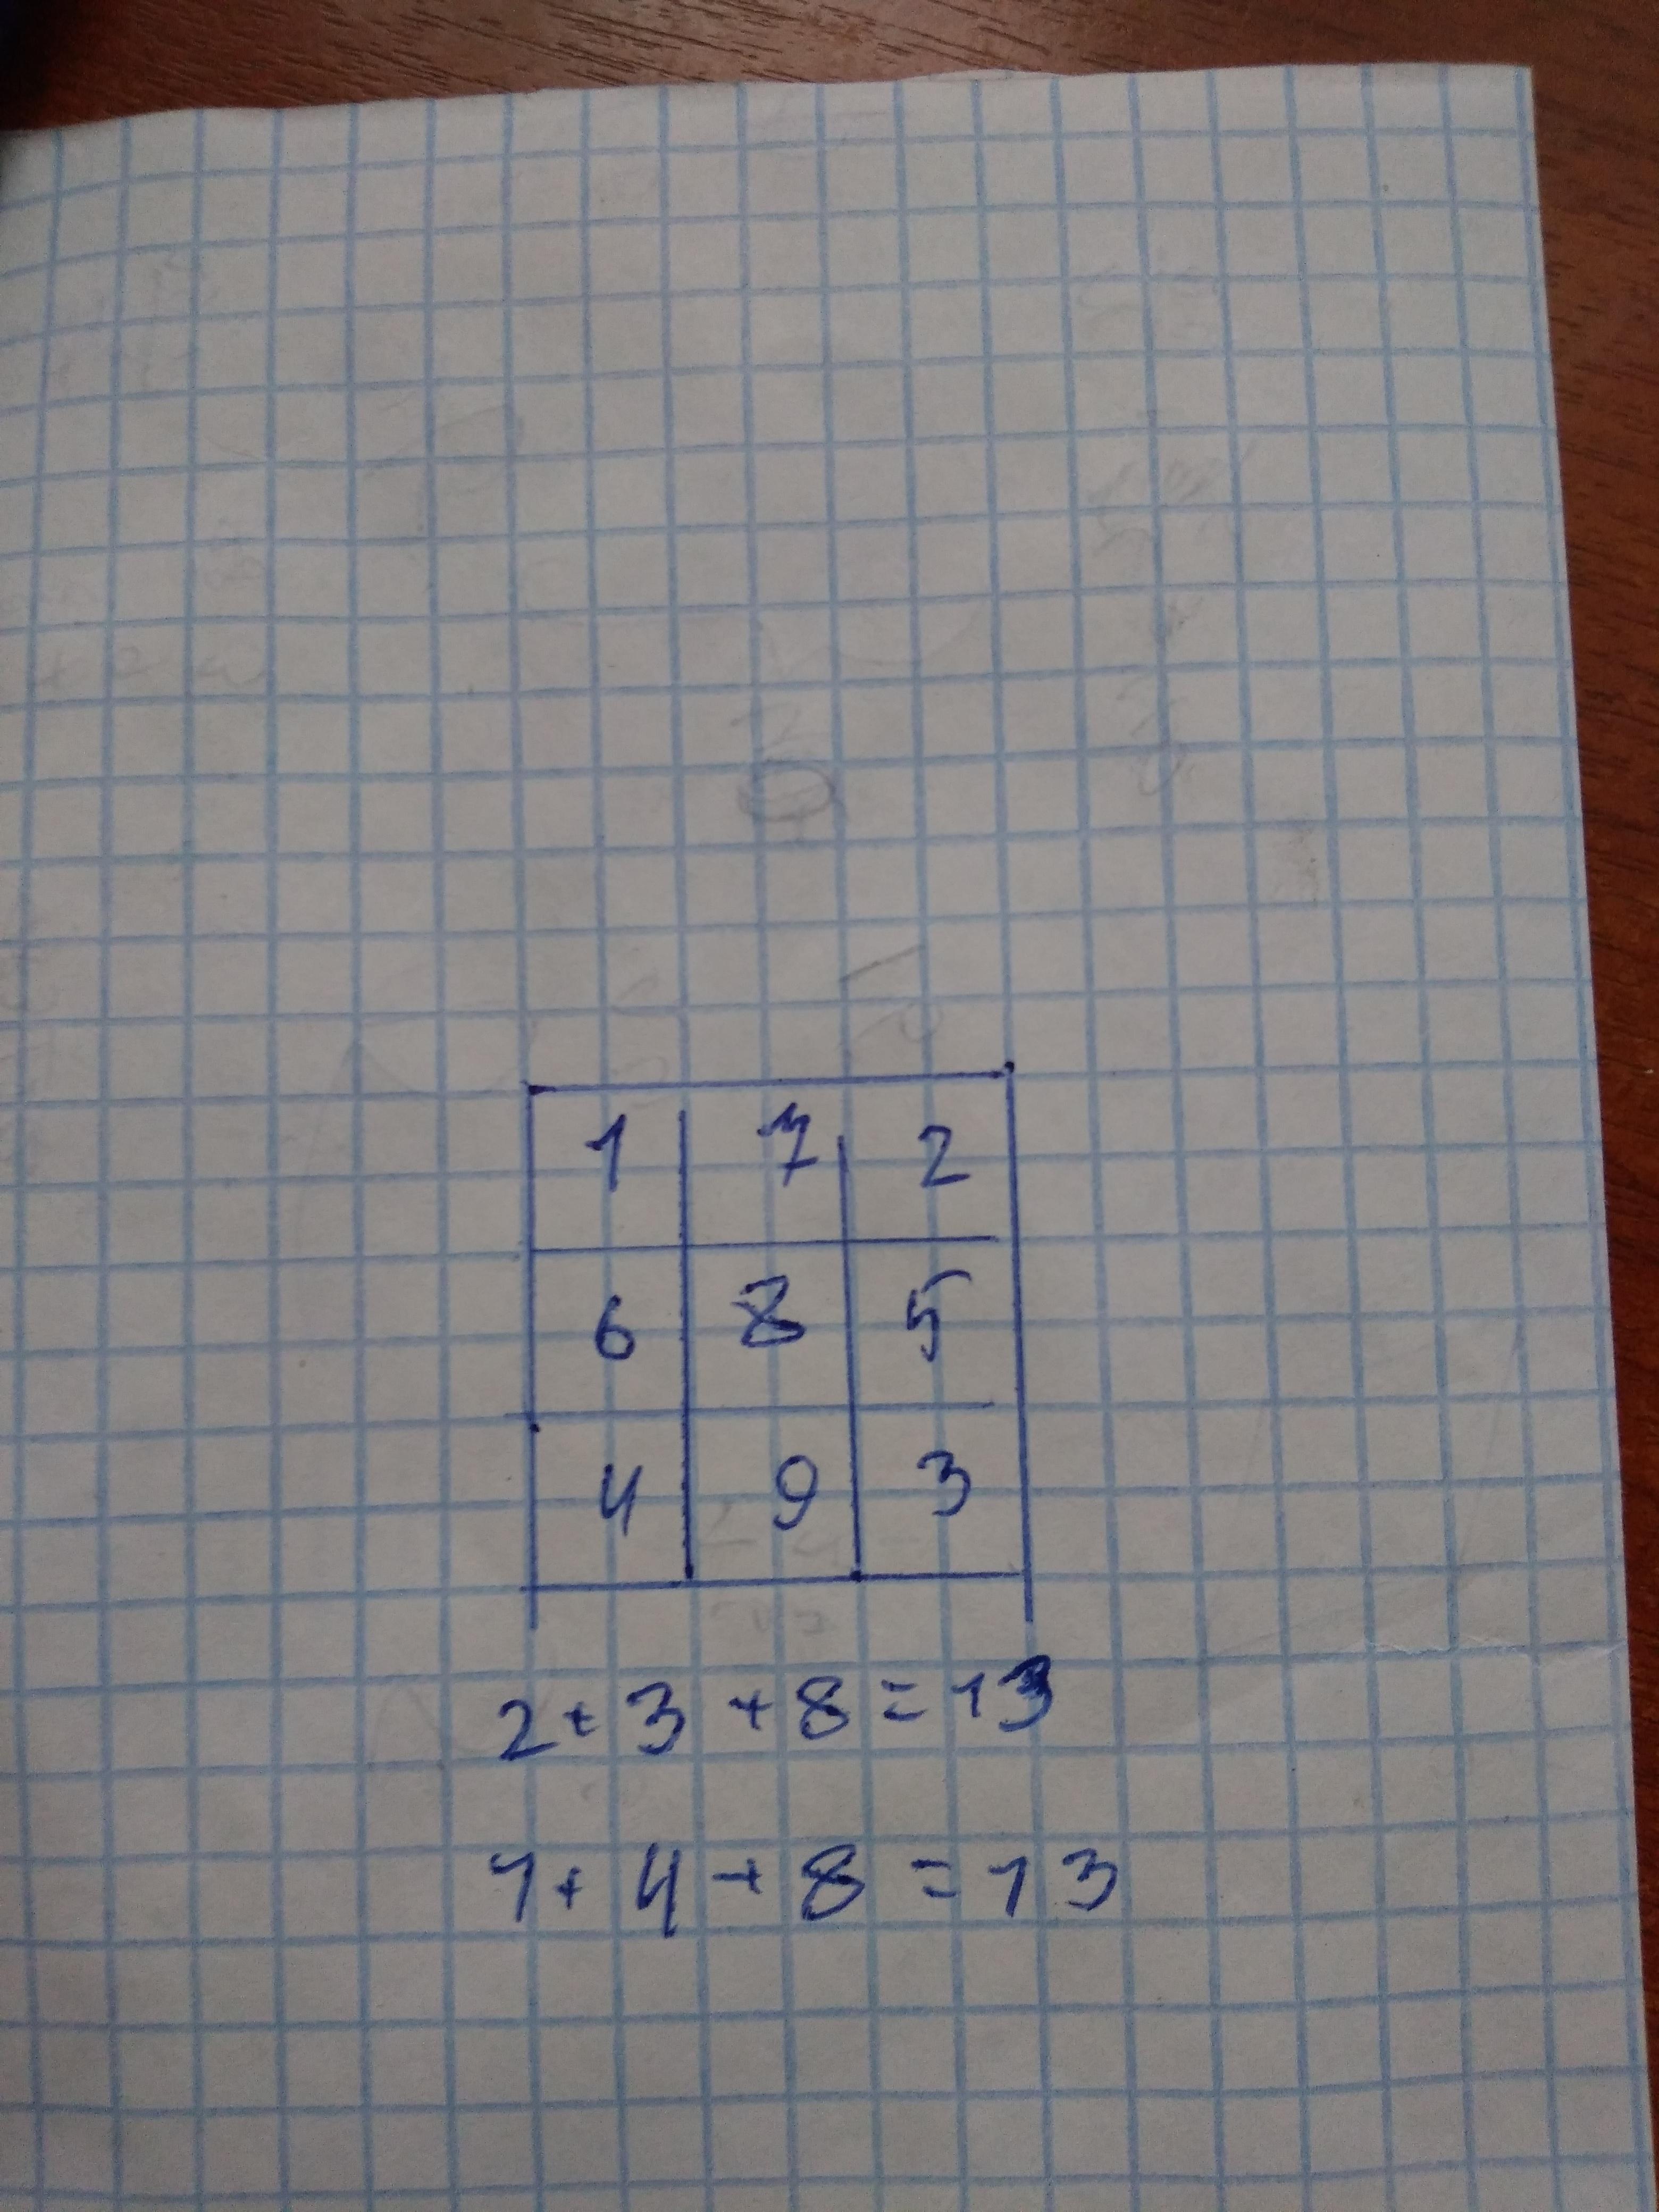 1 7 2
6 8 5
4 9 3
2+3+8=13
1+4+8=13